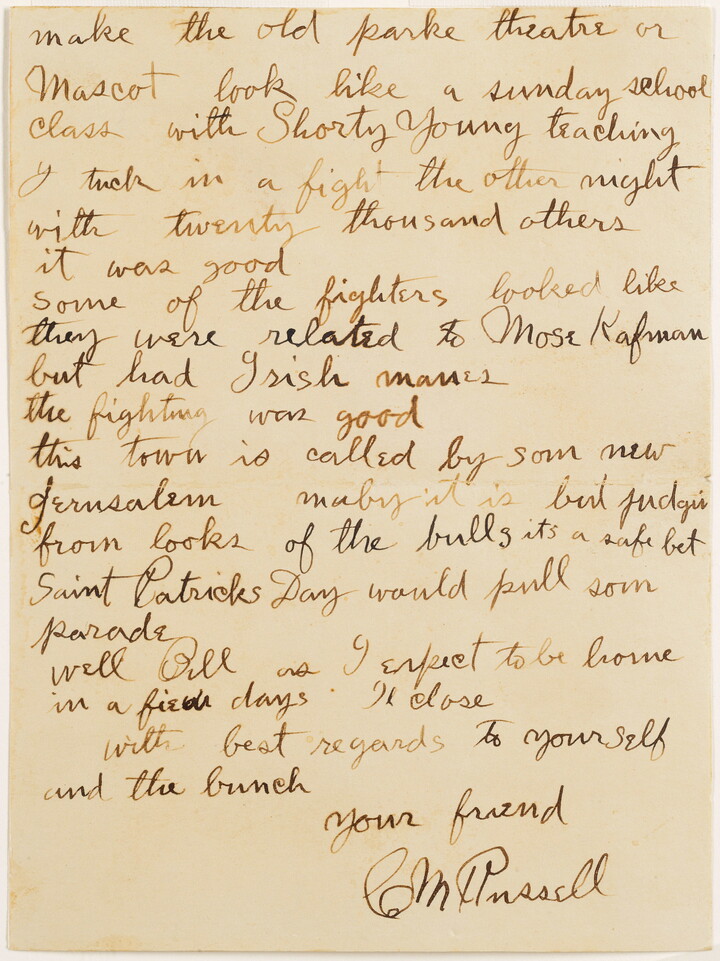 make the old parke theatre or
Mascot look like a sunday school
class with Shorty Young teaching
I tuck in a fight the other night
with twenty thousand others
it was good
some of the fighters looked like
they were related to Mose Kafman
but had Irish manes
the fighting was good
this town is called by som new
Jerusalem maby it is but judgin
from looks of the bulls its a safe bet
Saint Patricks Day would pull som
parade
well Bill as I expect to be home
in a fiew days Il close
with best regards to yourself
and the bunch
your friend
CM Russell